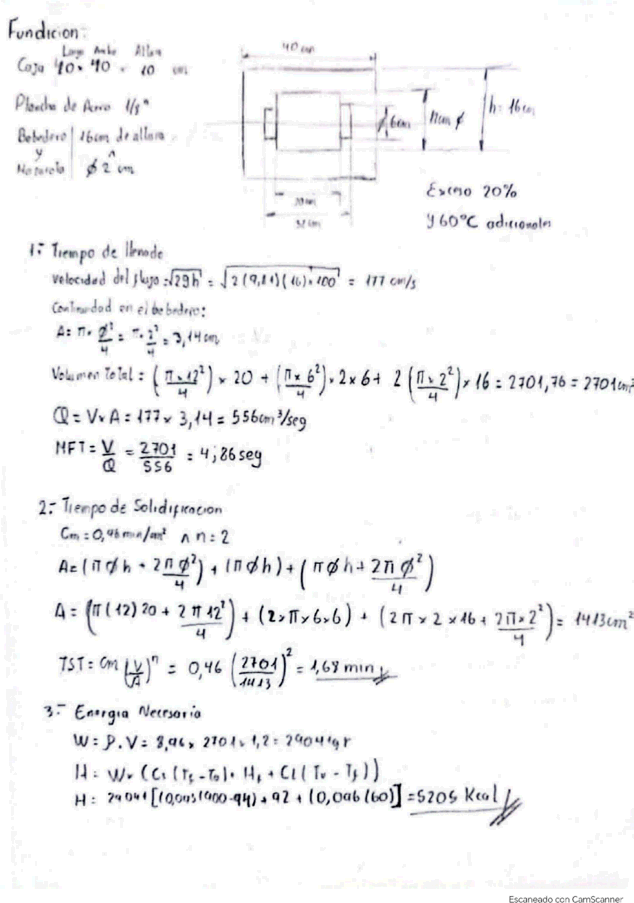 Fundicion:
Largo Ancho Altura
Caja 40 × 40 × 10 cm
Plancha de Acero 1/8"
Bebedero 16cm de altura
y
Mazarota ϕ 2 cm
40 cm
ϕ 6cm
12cm ϕ
h = 16cm
20cm
32cm
Exceso 20%
y 60°C adicionales
1.- Tiempo de llenado
Velocidad del flujo = √2gh = √2(9,81)(16)×100 = 177 cm/s
Continuidad en el bebedero:
A = π · ϕ²/4 = π · 2²/4 = 3,14cm
Volumen Total = (π×12²/4) × 20 + (π×6²/4) × 2×6 + 2(π×2²/4) × 16 = 2701,76 = 2701cm³
Q = V×A = 177 × 3,14 = 556cm³/seg
MFT = V/Q = 2701/556 = 4,86 seg
2.- Tiempo de Solidificacion
Cm = 0,46 min/cm² ∧ n = 2
A = (πϕh + 2πϕ²/4) + (πϕh) + (πϕh + 2πϕ²/4)
A = (π(12)20 + 2π12²/4) + (2×π×6×6) + (2π×2×16 + 2π×2²/4) = 1413cm²
TST = Cm (V/A)ⁿ = 0,46 (2701/1413)² = 1,68 min
3.- Energia Necesaria
W = ρ.V = 8,96 × 2701 × 1,2 = 29041gr
H = W× (Cs(Tf-To) + Hf + Cl(Tv-Tf))
= 5205 Kcal
Escaneado con CamScanner